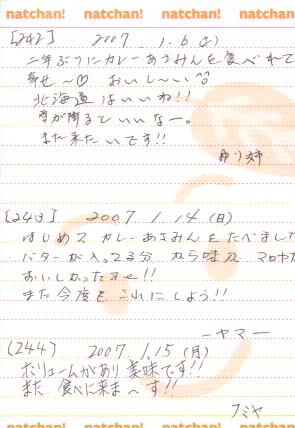 natchan! natchan! natchan! natchan!
[242] 2007 1.6 (土)
二年ぶりにカレーあさみんを食べれて
幸せ〜♡ おいし〜い
北海道はいいね!!
雪が降るといいなー。
また来たいです!!
ゆう姉
[243] 2007 1.14 (日)
はじめてカレーあさみんをたべました
バターが入ってる分
おいしかったぁぁ!!
また今度もこれにしよう!!
ーヤマー
(244) 2007.1.15 (月)
ボリュームがあり美味です!!
また食べに来ま〜す!!
フミヤ
natchan! natchan! natchan! natchan!